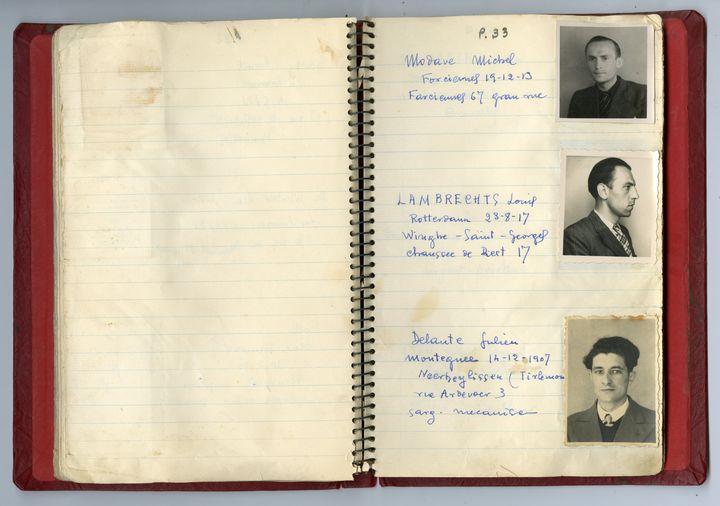 P. 33
Modave Michel
Farciennes 19-12-13
Farciennes 67 gran rue
LAMBRECHTS Louis
Rotterdam 23-8-17
Winghe-Saint-Georges
chaussee de Diest 17
Delante Julien
Montegnee 14-12-1907
Neerheylissen (Tirlemon
rue Ardevoer 3
sarg. mecanicien